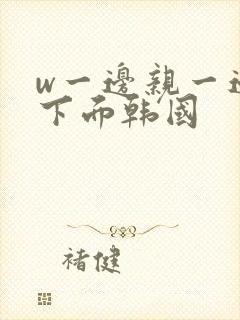 w一邊親一邊
下而韩国
褚健